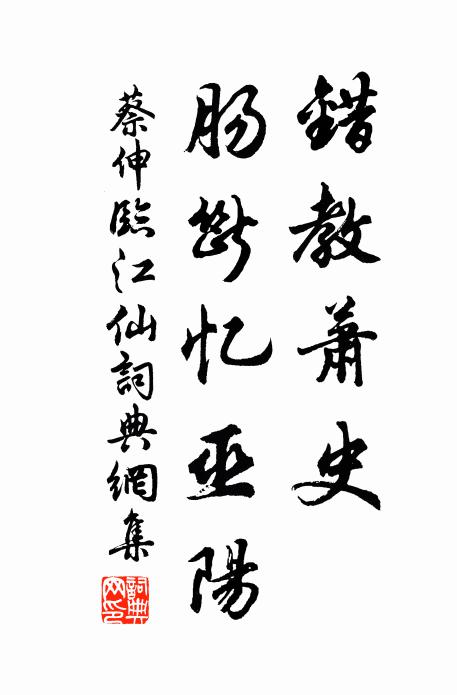 錯教蕭史
肠斷忆巫陽
蔡伸臨江仙詞典網集
詞典网印